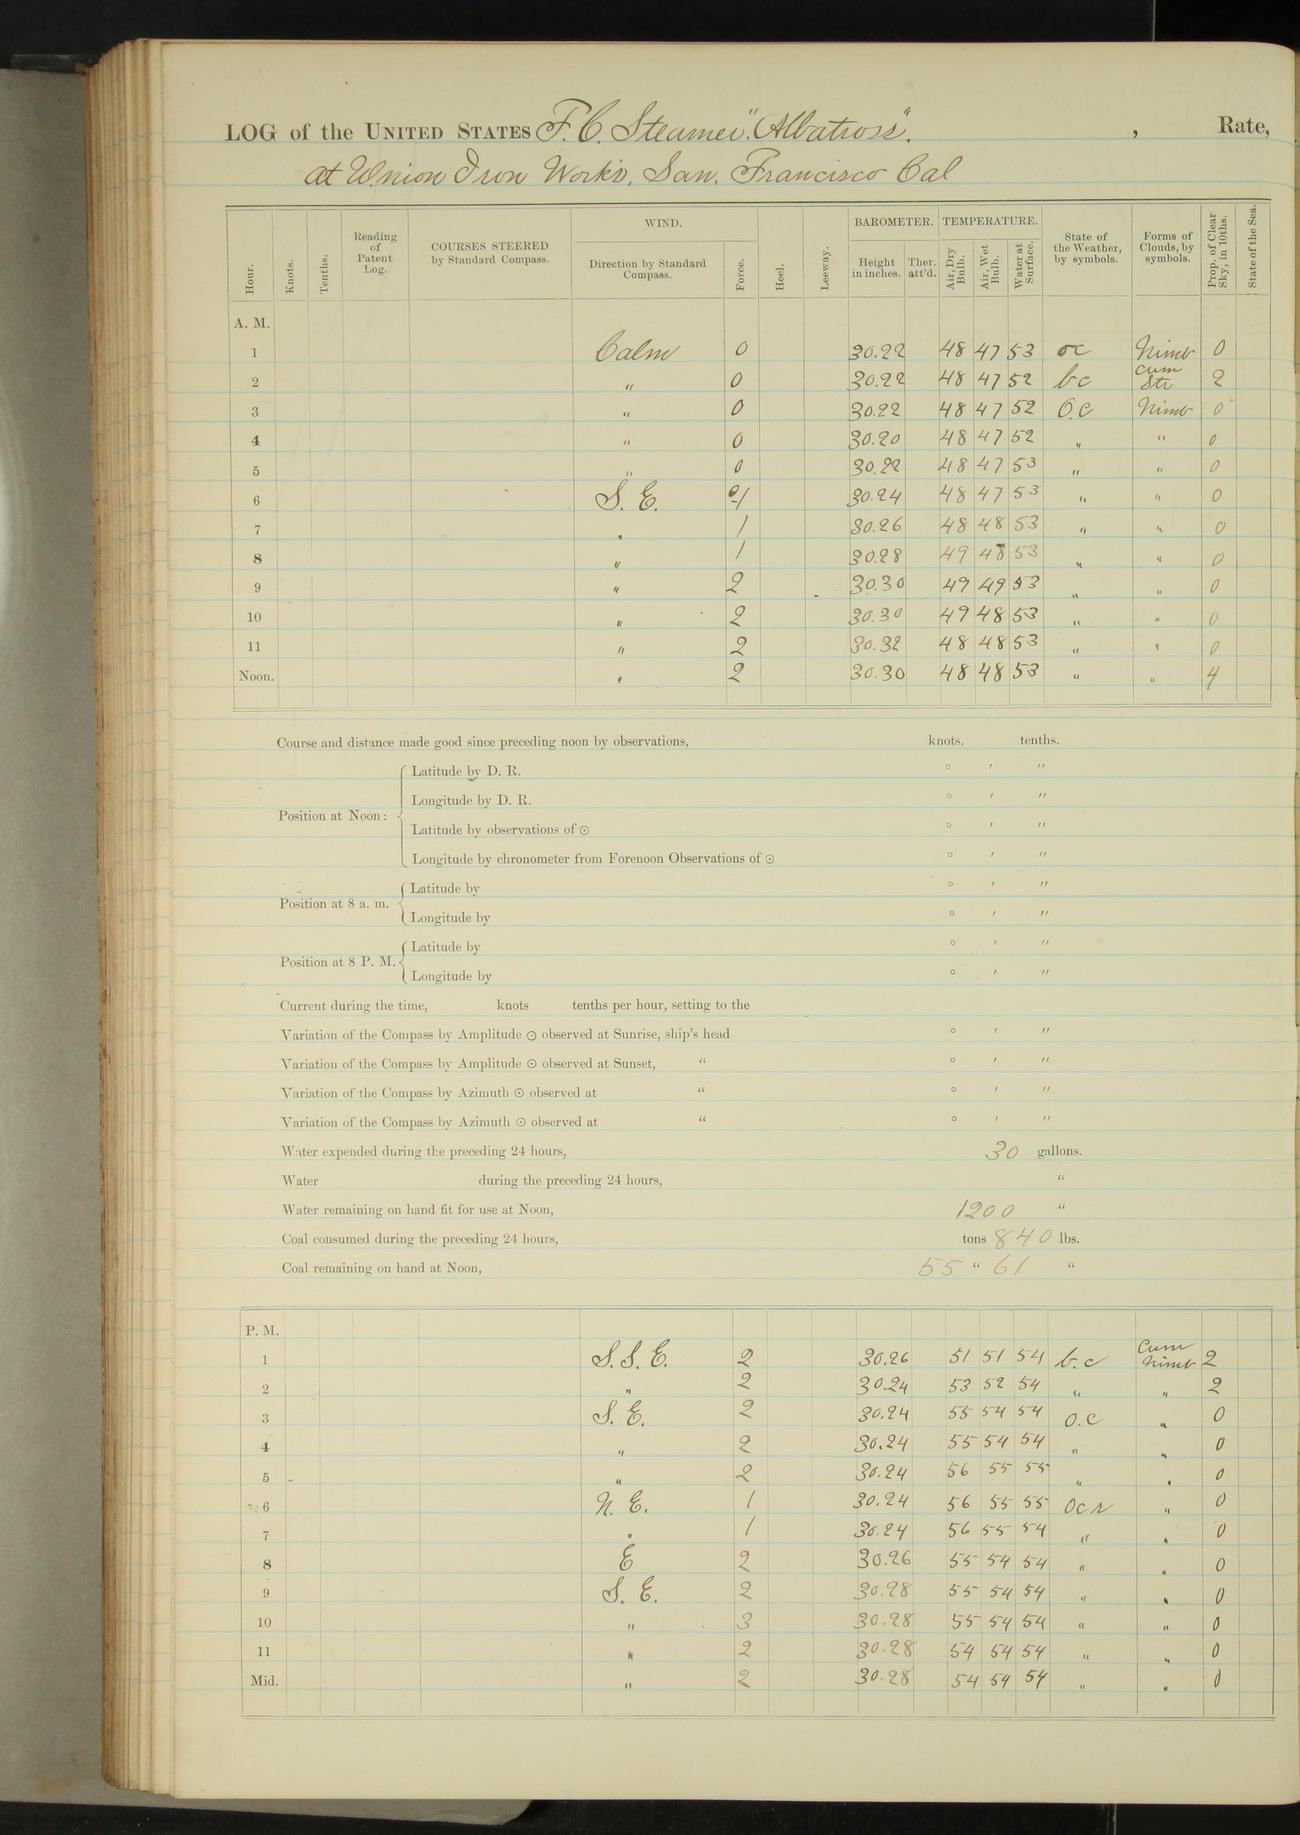 LOG of the UNITED STATES F. C. Steamer "Albatross". , Rate,
at Union Iron Works, San, Francisco Cal
Hour. Knots. Tenths. Reading of Patent Log. COURSES STEERED by Standard Compass. WIND. Direction by Standard Compass. Force. Heel. Leeway. BAROMETER. Height in inches. Ther. att'd. TEMPERATURE. Air, Dry Bulb. Air, Wet Bulb. Water at Surface. State of the Weather, by symbols. Forms of Clouds, by symbols. Prop. of Clear Sky, in 10ths. State of the Sea.
A. M.
1 Calm 0 30.22 48 47 53 oc Nimb 0
2 " 0 30.22 48 47 52 bc Cum Str 2
3 " 0 30.22 48 47 52 O.C Nimb 0
4 " 0 30.20 48 47 52 " " 0
5 " 0 30.22 48 47 53 " " 0
6 S. E. 0-1 30.24 48 47 53 " " 0
7 " 1 30.26 48 48 53 " " 0
8 " 1 30.28 49 48 53 " " 0
9 " 2 30.30 49 49 53 " " 0
10 " 2 30.30 49 48 53 " " 0
11 " 2 30.32 48 48 53 " " 0
Noon. " 2 30.30 48 48 53 " " 4
Course and distance made good since preceding noon by observations, knots. tenths.
Position at Noon: Latitude by D. R. ° ′ ″
Longitude by D. R. ° ′ ″
Latitude by observations of ⊙ ° ′ ″
Longitude by chronometer from Forenoon Observations of ⊙ ° ′ ″
Position at 8 a. m. Latitude by ° ′ ″
Longitude by ° ′ ″
Position at 8 P. M. Latitude by ° ′ ″
Longitude by ° ′ ″
Current during the time, knots tenths per hour, setting to the
Variation of the Compass by Amplitude ⊙ observed at Sunrise, ship's head ° ′ ″
Variation of the Compass by Amplitude ⊙ observed at Sunset, " ° ′ ″
Variation of the Compass by Azimuth ⊙ observed at " ° ′ ″
Variation of the Compass by Azimuth ⊙ observed at " ° ′ ″
Water expended during the preceding 24 hours, 30 gallons.
Water during the preceding 24 hours, "
Water remaining on hand fit for use at Noon, 1200 "
Coal consumed during the preceding 24 hours, tons 840 lbs.
Coal remaining on hand at Noon, 55 " 61 "
P. M.
1 S. S. E. 2 30.26 51 51 54 b.c Cum Nimb 2
2 " 2 30.24 53 52 54 " " 2
3 S. E. 2 30.24 55 54 54 O.C " 0
4 " 2 30.24 55 54 54 " " 0
5 " 2 30.24 56 55 55 " " 0
6 N. E. 1 30.24 56 55 55 OCR " 0
7 " 1 30.24 56 55 54 " " 0
8 E 2 30.26 55 54 54 " " 0
9 S. E. 2 30.28 55 54 54 " " 0
10 " 3 30.28 55 54 54 " " 0
11 " 2 30.28 54 54 54 " " 0
Mid. " 2 30.28 54 54 54 " " 0